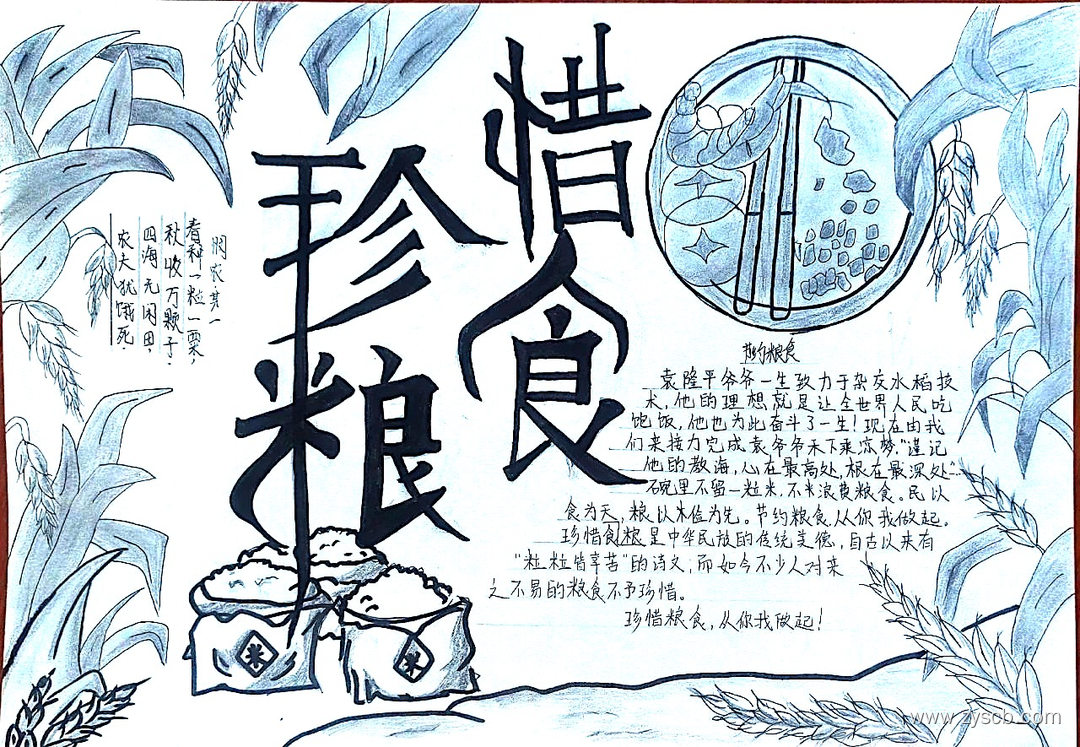 珍惜
粮食
悯农其一
春种一粒一粟，
秋收万颗子。
四海无闲田，
农夫犹饿死。
节约粮食
袁隆平爷爷一生致力于杂交水稻技
术，他的理想就是让全世界人民吃
饱饭，他也为此奋斗了一生！现在由我
们来接力完成袁爷爷禾下乘凉梦。“谨记
他的教海，心在最高处，根在最深处”
碗里不留一粒米，不米浪费粮食。民以
食为天，粮以木值为先。节约粮食从你我做起。
珍惜食粮是中华民族的传统美德，自古以来有
“粒粒皆辛苦”的诗文；而如今不少人对来
之不易的粮食不予珍惜。
珍惜粮食，从你我做起！
米
米
www.zyscb.com